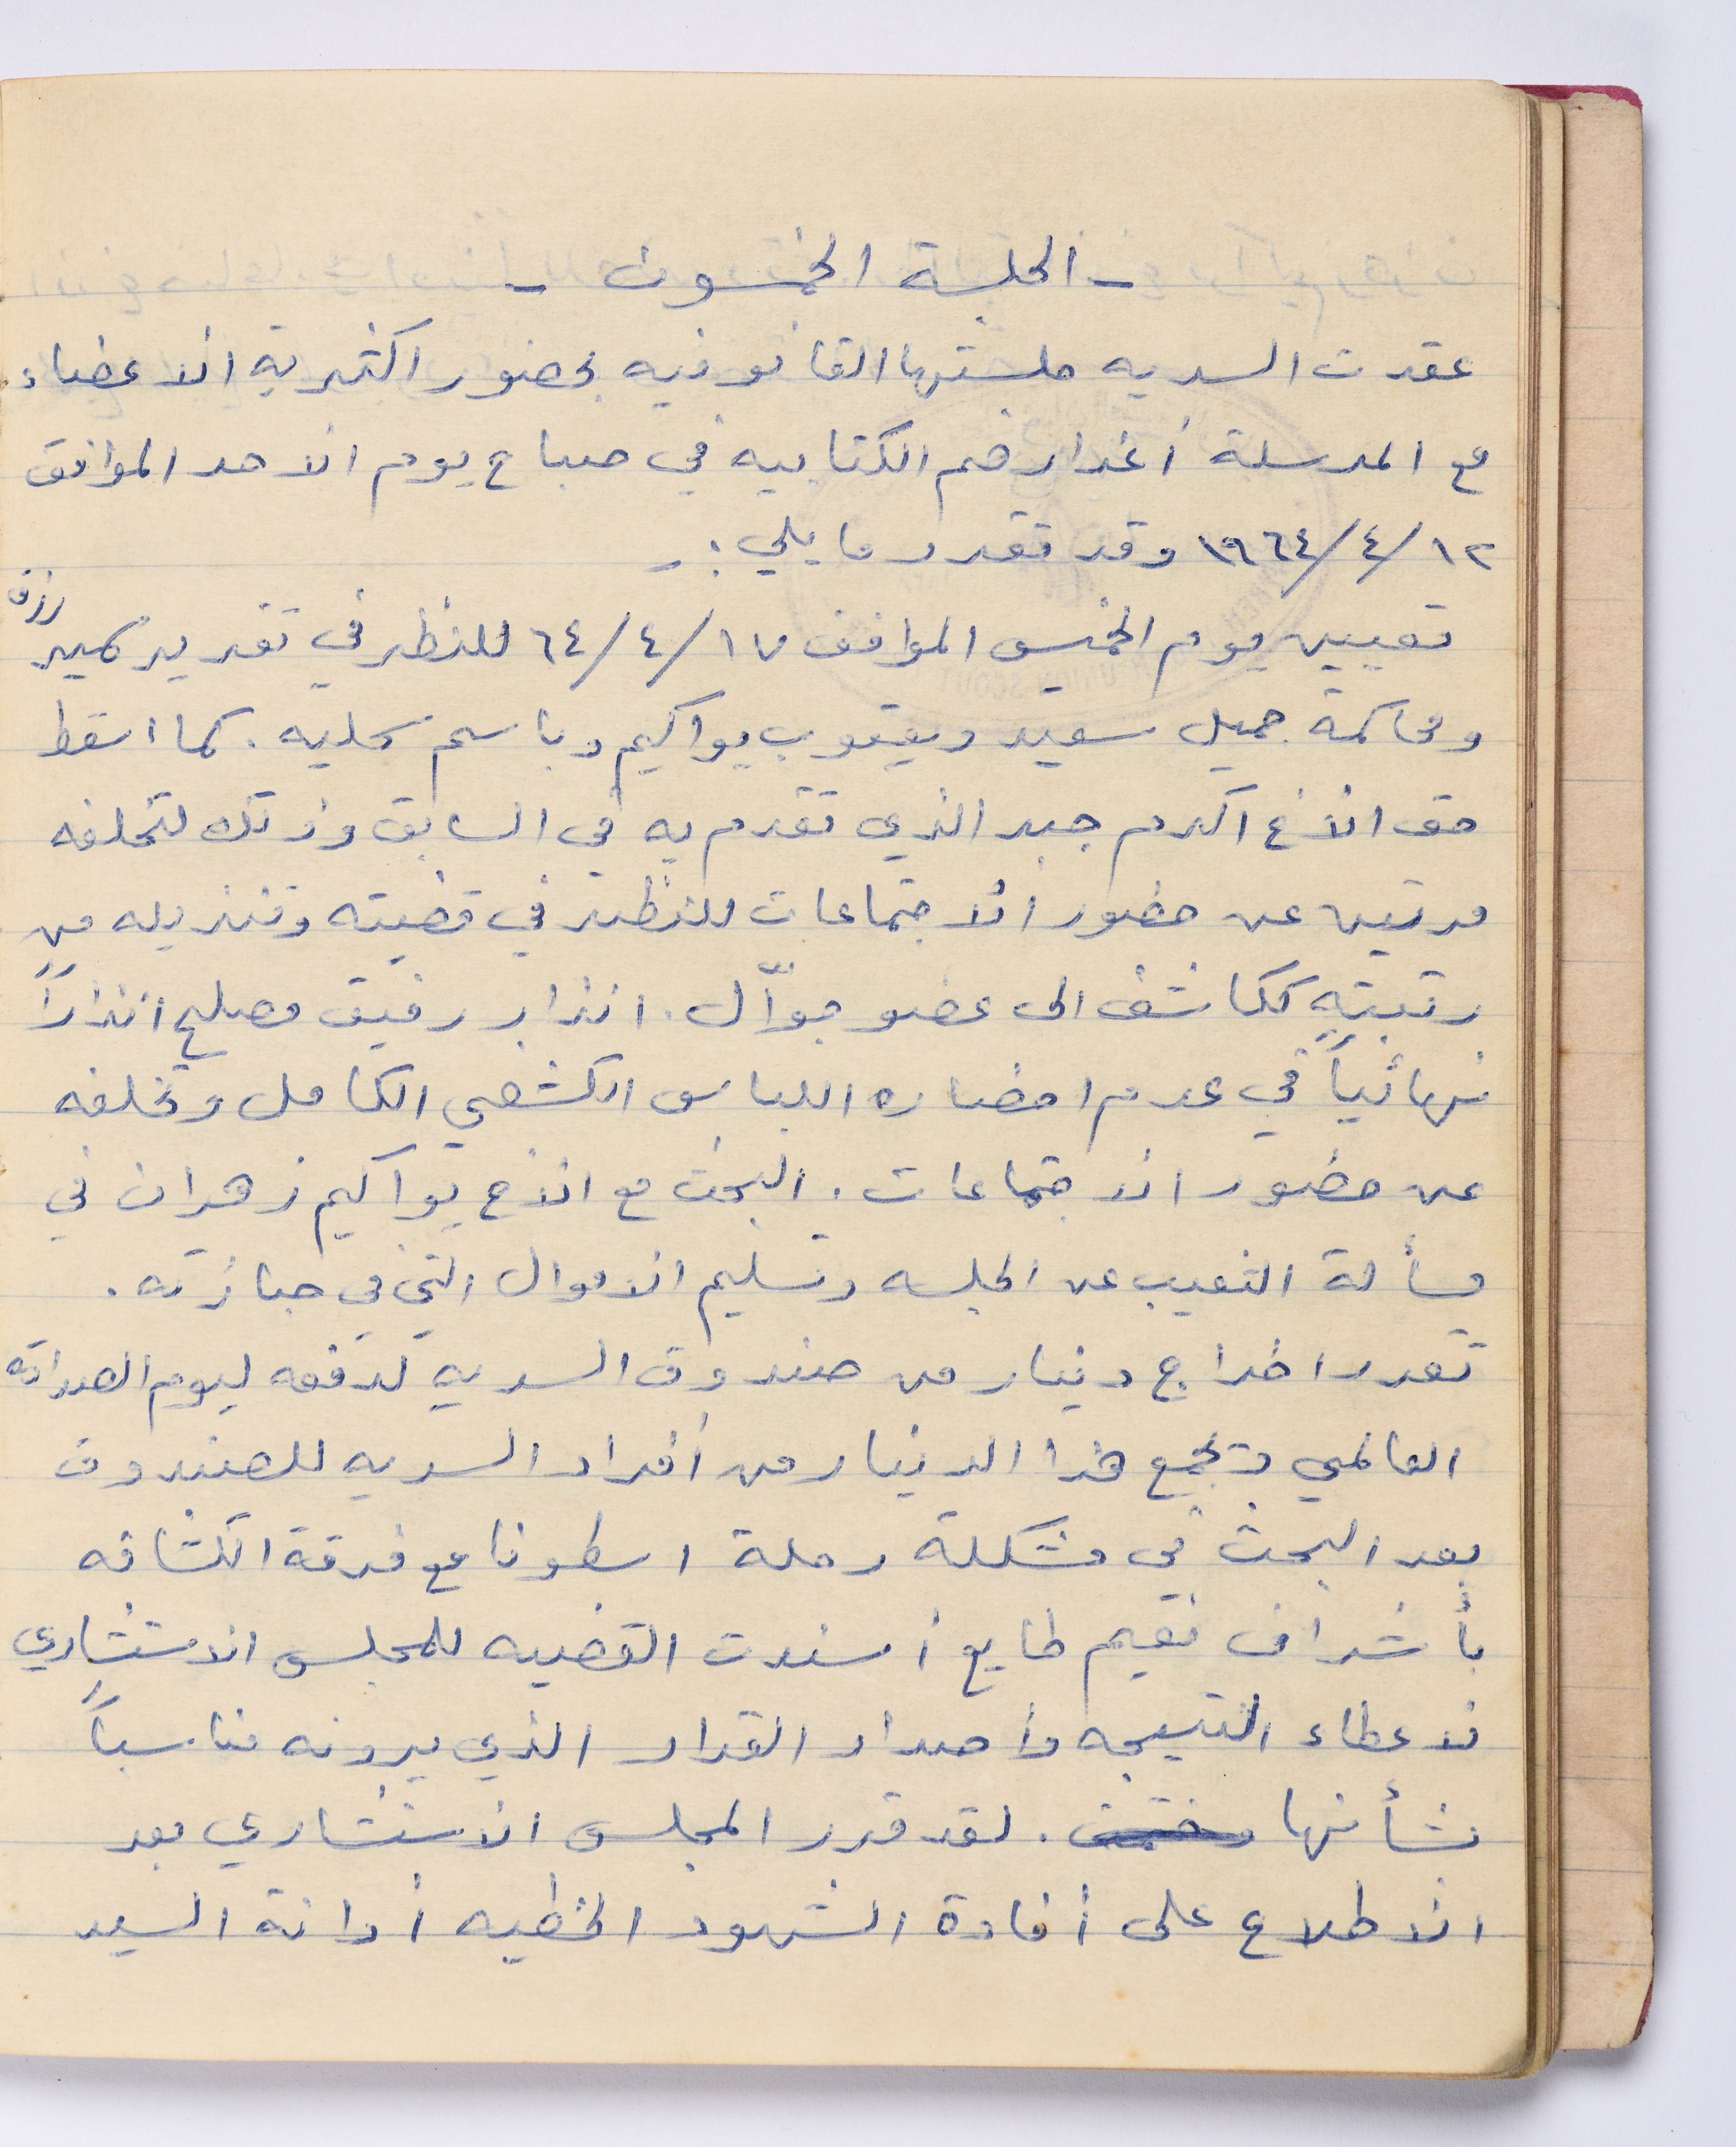 - الجلسة الخمسون -
عقدت السريه جلستها القانونيه بحضور اكثرية الاعضاء
مع المرسلة أعذارهم الكتابيه في صباح يوم الاحد الموافق
١٢/٤/١٩٦٤ وقد تقرر ما يلي :-
تعيين يوم الخميس الموافق ١٧/٤/٦٤ للنظر في تقرير سمير رزق
ومحاكمة جميل سعيد ويعقوب يواكيم وباسم سحليه. كما اسقط
حق الاخ اكرم جبر الذي تقدم به في السابق وذلك لتخلفه
مرتين عن حضور الاجتماعات للنظر في قضيته وتنزيله من
رتبته ككاشف الى عضو جوّال. انذار رفيق مصلح انذاراً
نهائياً في عدم احضاره اللباس الكشفي الكامل وتخلفه
عن حضور الاجتماعات. البحث مع الاخ يواكيم زهران في
مسألة التغيب عن الجلسه وتسليم الاموال التي في حيازته.
تقرر اخراج دينار من صندوق السريه لدفعه ليوم الصداقه
العالمي وتجمع هذا الدينار من أفراد السريه للصندوق
بعد البحث في مشكلة رحلة اسطونا مع فرقة الكشافه
بأشراف نعيم طايع أسندت القضيه للمجلس الاستشاري
لاعطاء النتيجه وأصدار القرار الذي يرونه مناسباً
بشأنها. لقد قرر المجلس الاستشاري بعد
الاطلاع على أفادة الشهود الخطيه أدانة السيد